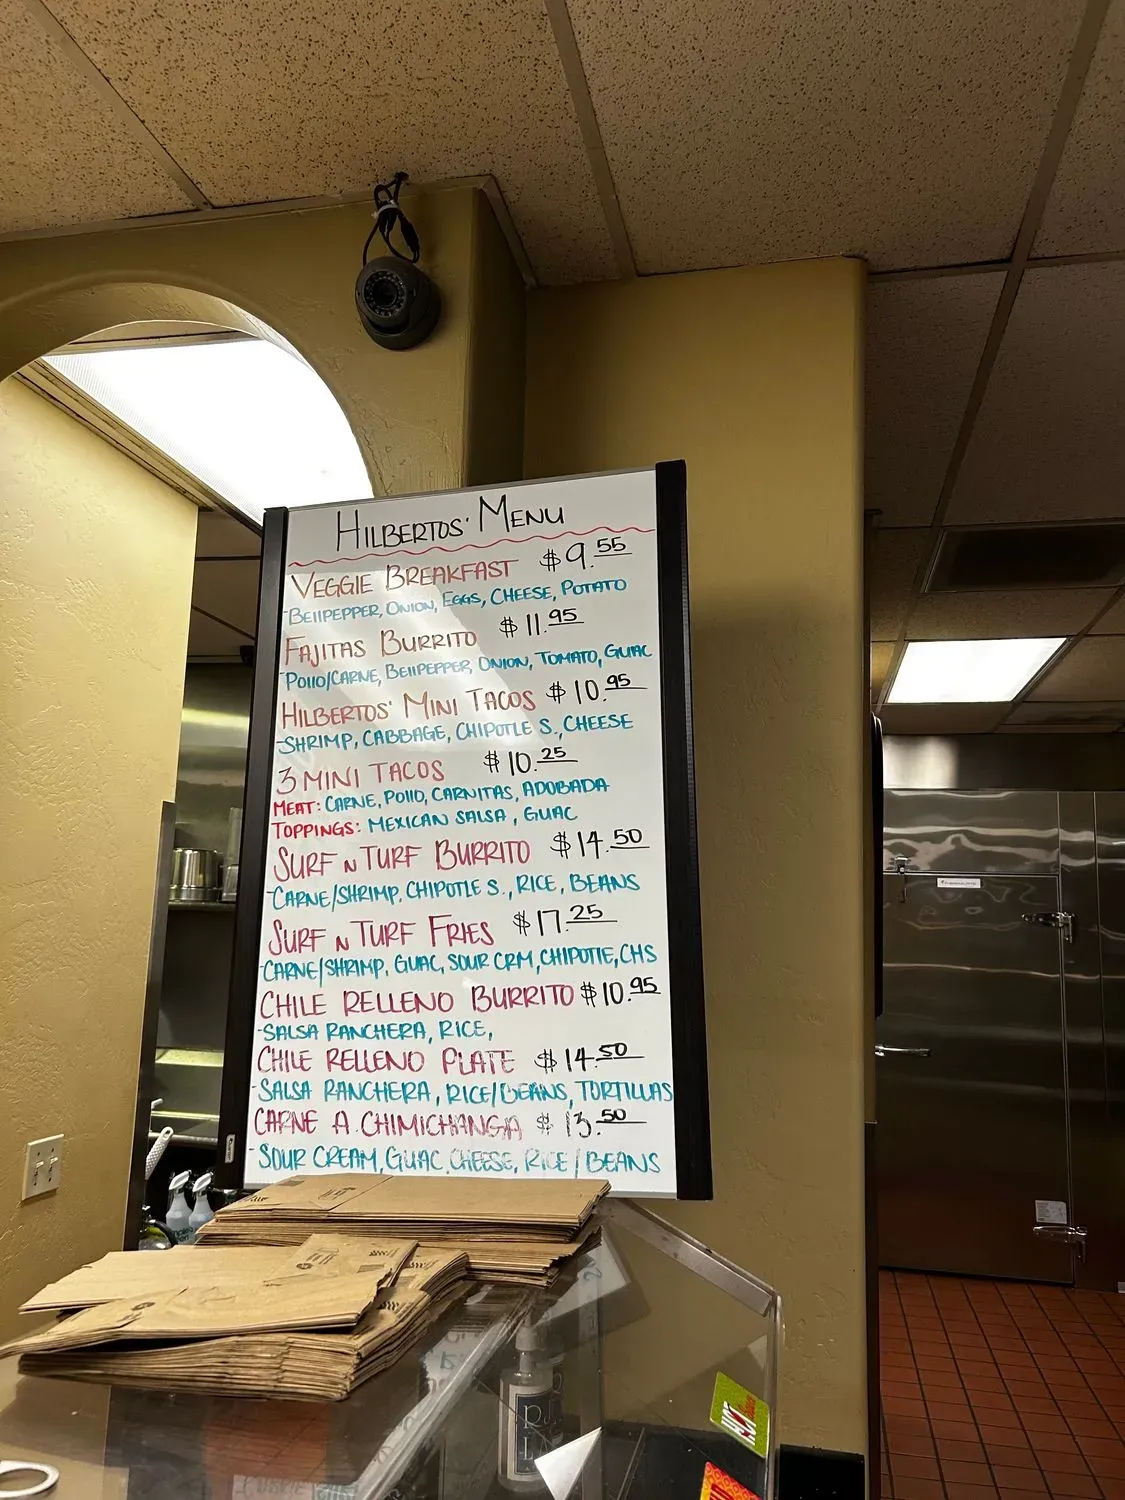 HILBERTOS' MENU
VEGGIE BREAKFAST $9.55
-BEllPEPPER, ONION, EGGS, CHEESE, POTATO
FAJITAS BURRITO $11.95
-POllO/CARNE, BEllPEPPER, ONION, TOMATO, GUAC
HILBERTOS' MINI TACOS $10.95
-SHRIMP, CABBAGE, CHIPOTLE S., CHEESE
3 MINI TACOS $10.25
MEAT: CARNE, POllO, CARNITAS, ADOBADA
TOPPINGS: MEXICAN SALSA, GUAC
SURF N TURF BURRITO $14.50
-CARNE/SHRIMP, CHIPOTLE S., RICE, BEANS
SURF N TURF FRIES $17.25
-CARNE/SHRIMP, GUAC, SOUR CRM, CHIPOTlE, CHS
CHILE RELLENO BURRITO $10.95
-SALSA RANCHERA, RICE,
CHILE RELLENO PLATE $14.50
-SALSA RANCHERA, RICE/BEANS, TORTILLAS
CARNE A. CHIMICHANGA $13.50
-SOUR CREAM, GUAC, CHEESE, RICE/BEANS